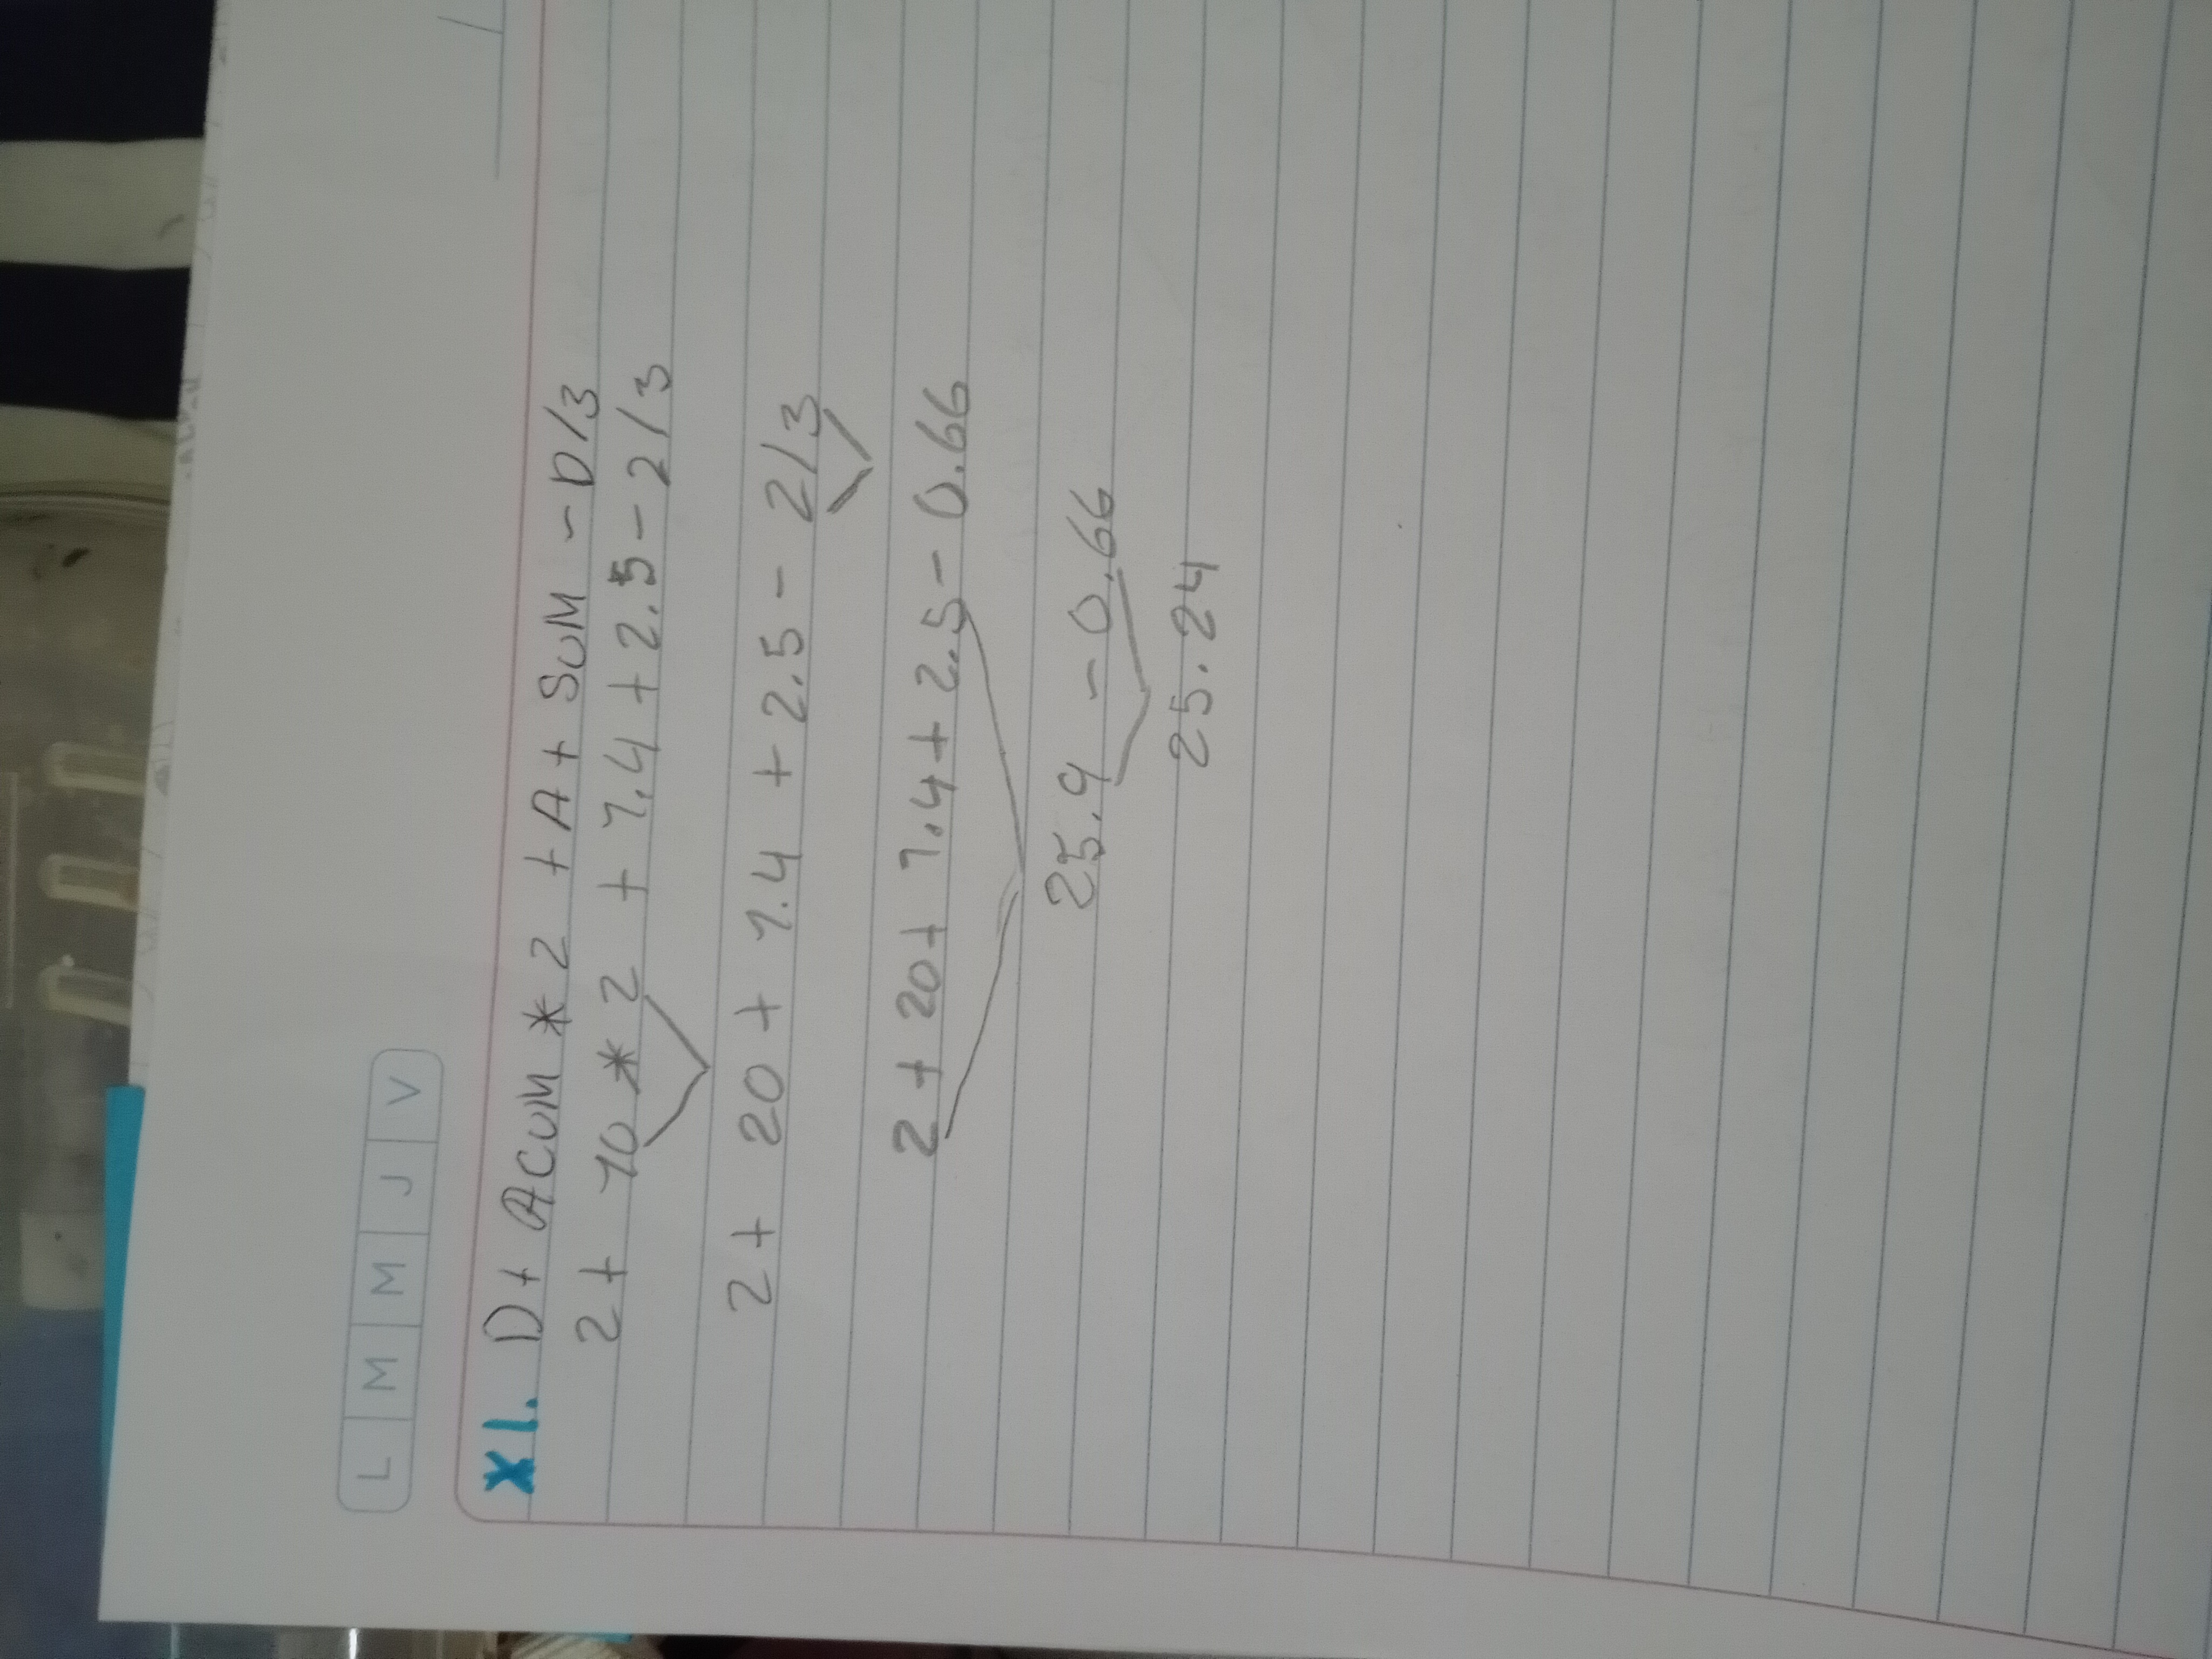 L M M J V
X1. D+ ACUM * 2 + A + SUM - D/3
2 + 10 * 2 + 1.4 + 2.5 - 2/3
2 + 20 + 1.4 + 2.5 - 2/3
2 + 20 + 1.4 + 2.5 - 0.66
25.9 - 0.66
25.24